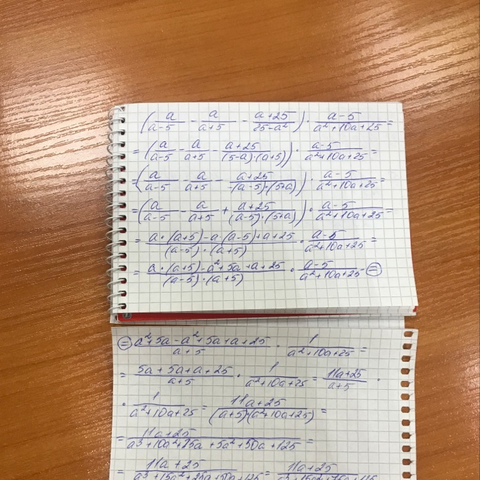 (a/(a-5) - a/(a+5) - (a+25)/(25-a²)) · (a-5)/(a²+10a+25) =
= (a/(a-5) - a/(a+5) - (a+25)/((5-a)·(a+5))) · (a-5)/(a²+10a+25) =
= (a/(a-5) - a/(a+5) - (a+25)/(-(a-5)·(5+a))) · (a-5)/(a²+10a+25) =
= (a/(a-5) - a/(a+5) + (a+25)/((a-5)·(5+a))) · (a-5)/(a²+10a+25) =
= (a·(a+5)-a·(a-5)+a+25)/((a-5)·(a+5)) · (a-5)/(a²+10a+25) =
= (a·(a+5)-a²+5a+a+25)/((a-5)·(a+5)) · (a-5)/(a²+10a+25) =
= (a²+5a-a²+5a+a+25)/(a+5) · 1/(a²+10a+25) =
= (5a+5a+a+25)/(a+5) · 1/(a²+10a+25) = (11a+25)/(a+5) ·
· 1/(a²+10a+25) = (11a+25)/((a+5)(a²+10a+25)) =
= (11a+25)/(a³+10a²+25a+5a²+50a+125) =
= (11a+25)/(a³+15a²+25a+50a+125) = (11a+25)/